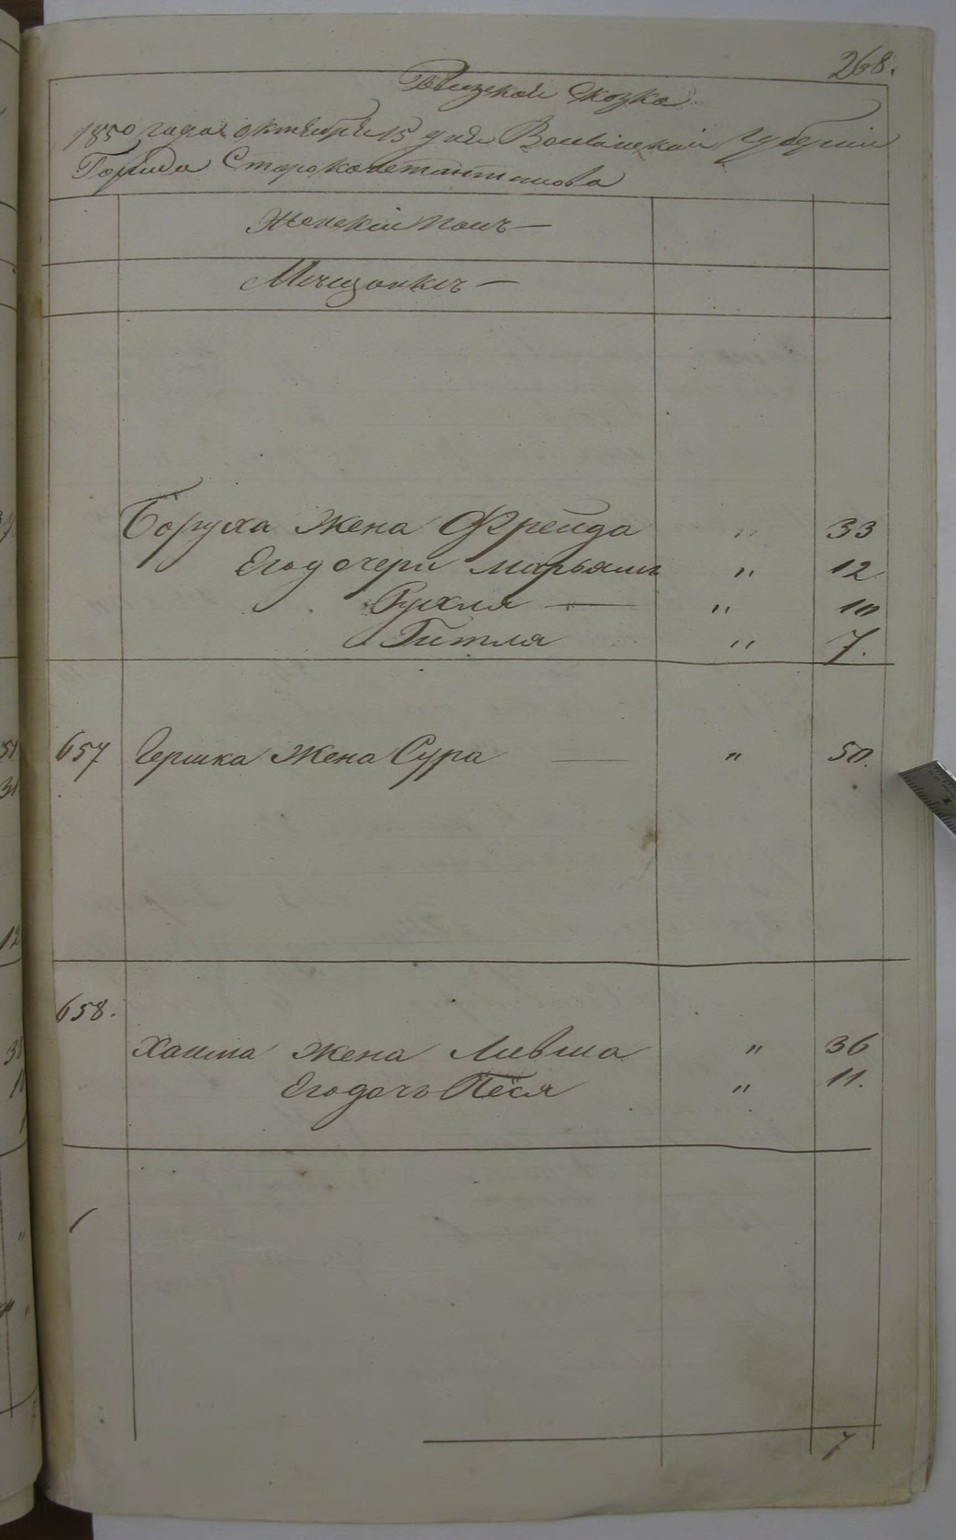 268.
Ревизская Сказка
1850 года октября 15 дня Волынской Губернии
Города Староконстантинова
Женскій полъ —
Мещанкъ —
Боруха жена Фрейда " 33
Его дочери Марьямъ " 12
Рухля — " 10
Гитля " 7.
657 Гершка жена Сура — " 50.
658.
Хаима жена Ливша " 36
Его дочь Песя " 11.
7